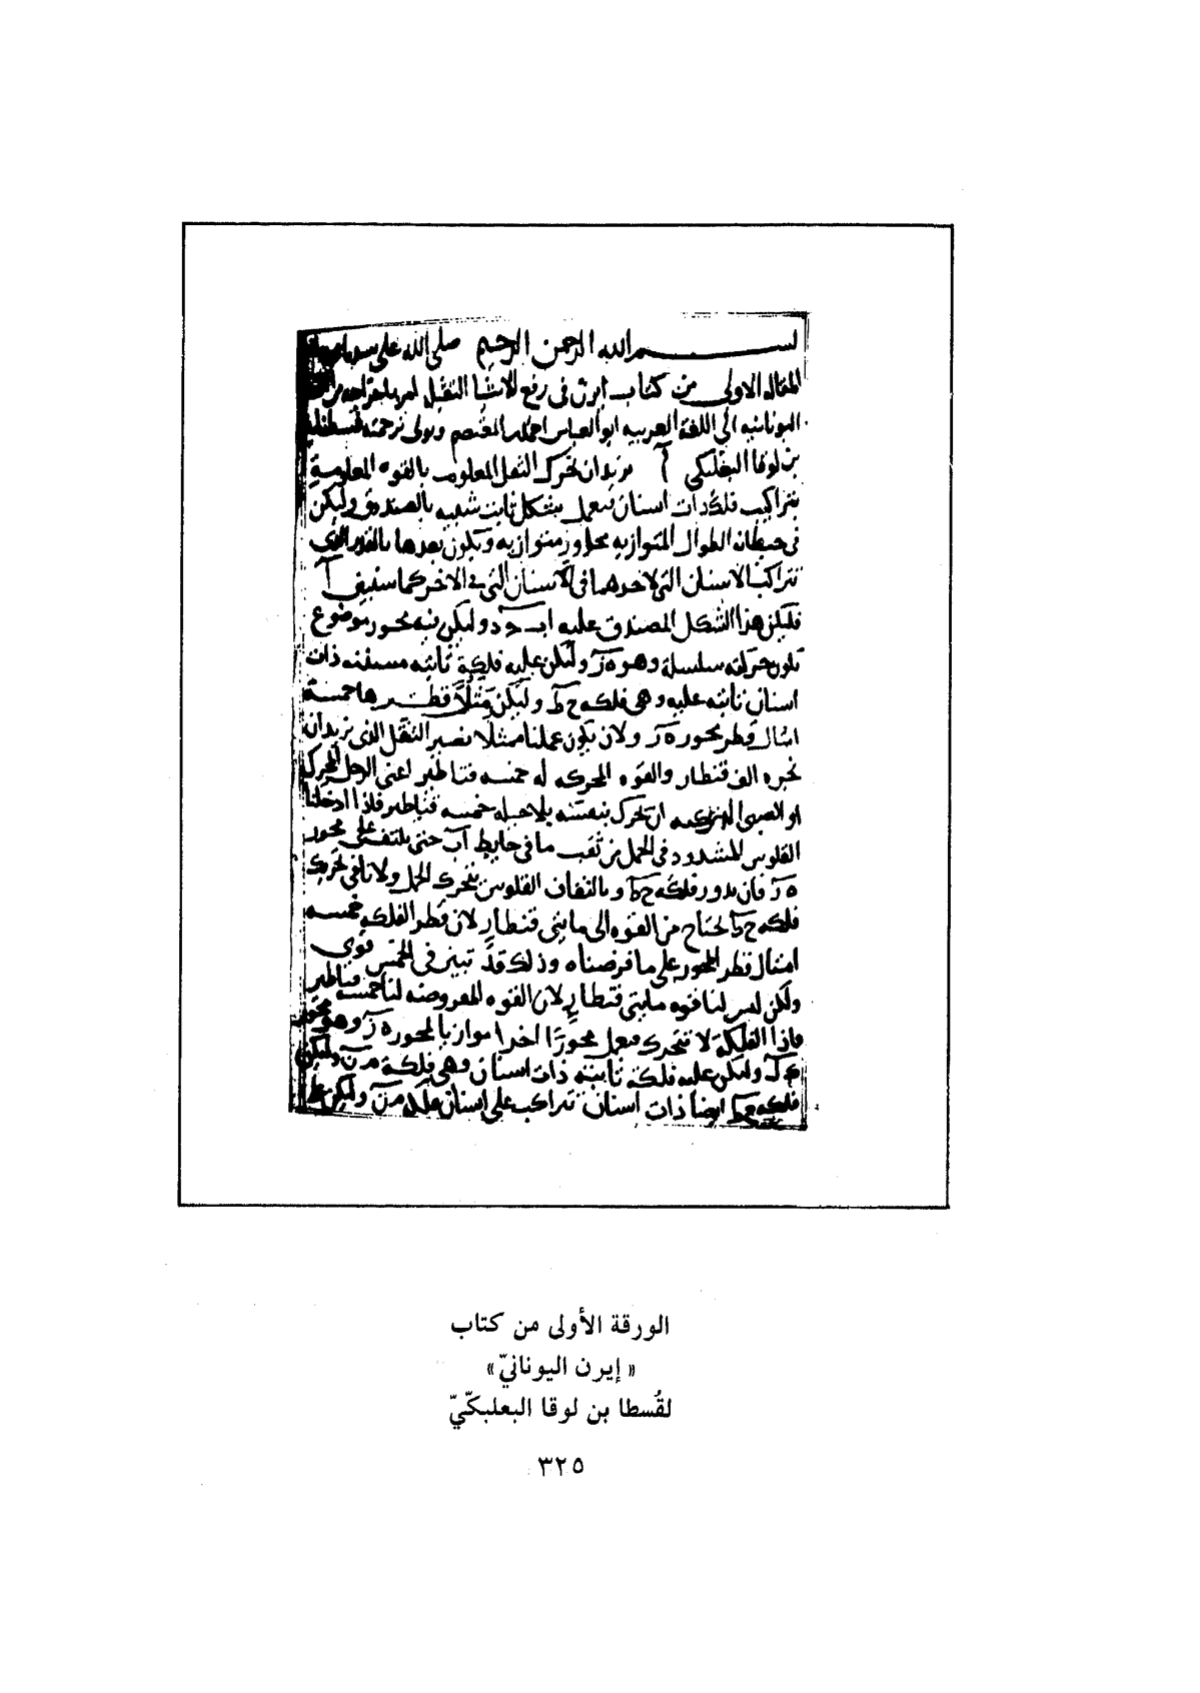 بسم الله الرحمن الرحيم صلى الله على
المقالة الاولى من كتاب ايرن في رفع الاشيا الثقيلة امر باخراجه من
اليونانيه الى اللغة العربيه ابو العباس احمد بن المعتصم وتولى ترجمته قسطا
بن لوقا البعلبكى آ نريد ان نحرك الثقل المعلوم بالقوه المعلومة
بتراكيب فلك ذات اسنان نعمل شكل ثابت شبيه بالصندوق وليكن
في حيطانه الطوال المتوازيه محاور متوازيه وتكون بعدها بالقدر الذي
تتراكب الاسنان التي لاحدهما في الاسنان التي في الاخر كما سنبين
فليكن هذا الشكل المصندق عليه ابـ حد وليكن فيه محور موضوع
تكون حركته سلسلة وهو هز وليكن عليه فلكة ثابته مسننه ذات
اسنان ثابته عليه وهي فلكه حط وليكن مثلاً قطرها خمسة
امثال قطر محور هز ولان يكون عملنا ممثلا نصير الثقل الذي نريد ان
نجره الف قنطار والقوه المحركه له خمسه قناطير اعني الرجل المحرك
او الصبي ان يحرك بنفسه بلا حيله خمسه قناطير فاذا ادخلنا
القلوس المشدود في الحمل من ثقب ما في حايط اب حتى يلتف على محور
هز فان بدور فلكه حط وبالتفاف القلوس يتحرك الحمل ولانا في تحريك
فلكه حط نحتاج من القوه الى مايتي قنطار لان قطر الفلكه خمسه
امثال قطر المحور على ما فرضناه وذلك قد تبين في الخمس قوى
ولكن ليس لنا قوه مايتي قنطار لان القوه المفروضه لنا خمسه قناطير
فاذا الفلكة لا تتحرك فنعمل محورًا اخرا موازيا لمحور هز وهو محور
كل وليكن عليه فلكة ثابته ذات اسنان وهي فلكة من وليكن
فلكه حط ايضا ذات اسنان تتراكب على اسنان فلكه من وليكن على
الورقة الأولى من كتاب
« إيرن اليونانيّ»
لقُسطا بن لوقا البعلبكّيّ
٣٢٥